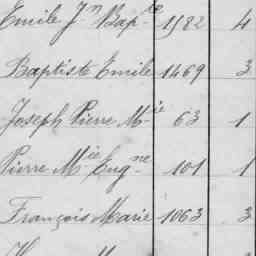 Emile Jn Bapte 1582 4
Baptiste Emile 1469 3
Joseph Pierre Mie 63 1
Pierre Mie Eugne 101 1
François Marie 1063 3